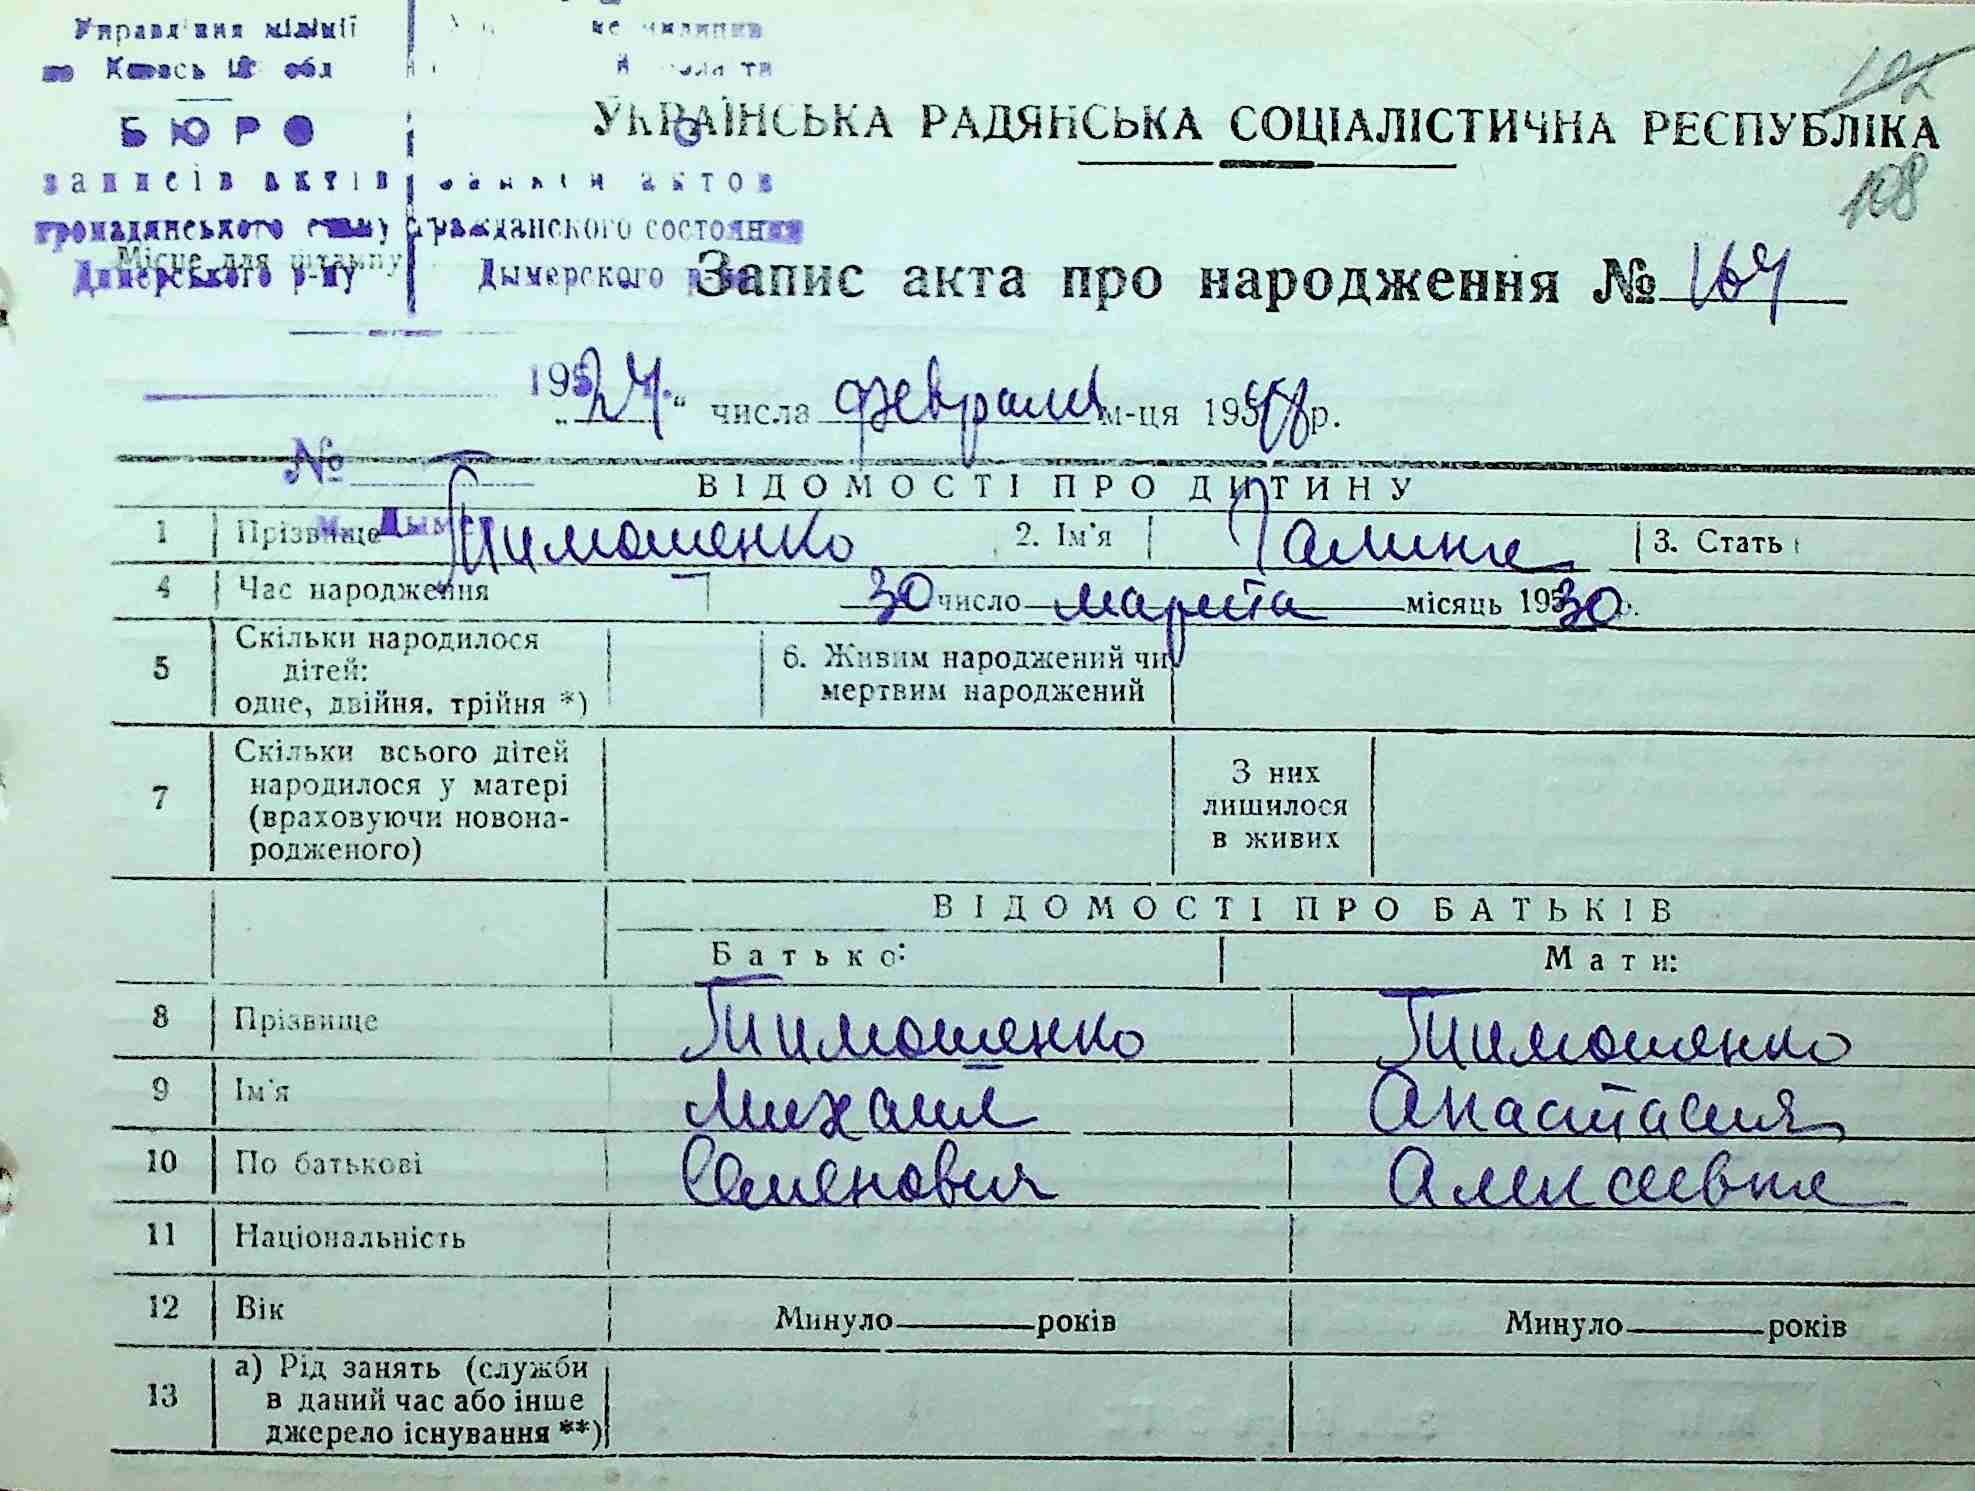 Управління міліції
по обл
БЮРО
записів актів актов
громадянського стану гражданского состояния
Місце для штампу
Димерського р-ну Дымерского
102
108
УКРАЇНСЬКА РАДЯНСЬКА СОЦІАЛІСТИЧНА РЕСПУБЛІКА
Запис акта про народження №
195
„24“ числа февраля м-ця 195 р.
№
ВІДОМОСТІ ПРО ДИТИНУ
1 Прізвище Тимошенко 2. Ім'я Галина 3. Стать
4 Час народження 30 число марта місяць 1930 р.
5 Скільки народилося дітей: одне, двійня, трійня *) 6. Живим народжений чи мертвим народжений
7 Скільки всього дітей народилося у матері (враховуючи новона-родженого) З них лишилося в живих
ВІДОМОСТІ ПРО БАТЬКІВ
Батько: Мати:
8 Прізвище Тимошенко Тимошенко
9 Ім'я Михаил Анастасия
10 По батькові Семенович Алексеевна
11 Національність
12 Вік Минуло років Минуло років
13 а) Рід занять (служби в даний час або інше джерело існування **)